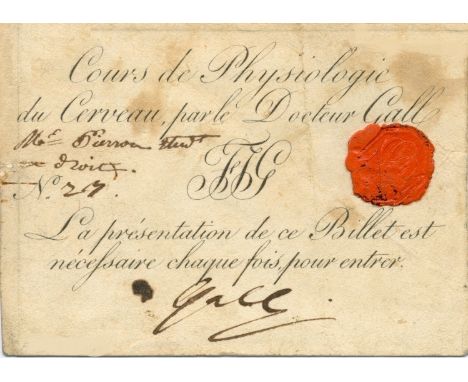 Cours de Physiologie
du Cerveau, par le Docteur Gall
Mr. Pierron Etudt
en droit.
FJG
No. 217
La présentation de ce Billet est
nécessaire chaque fois, pour entrer.
Gall